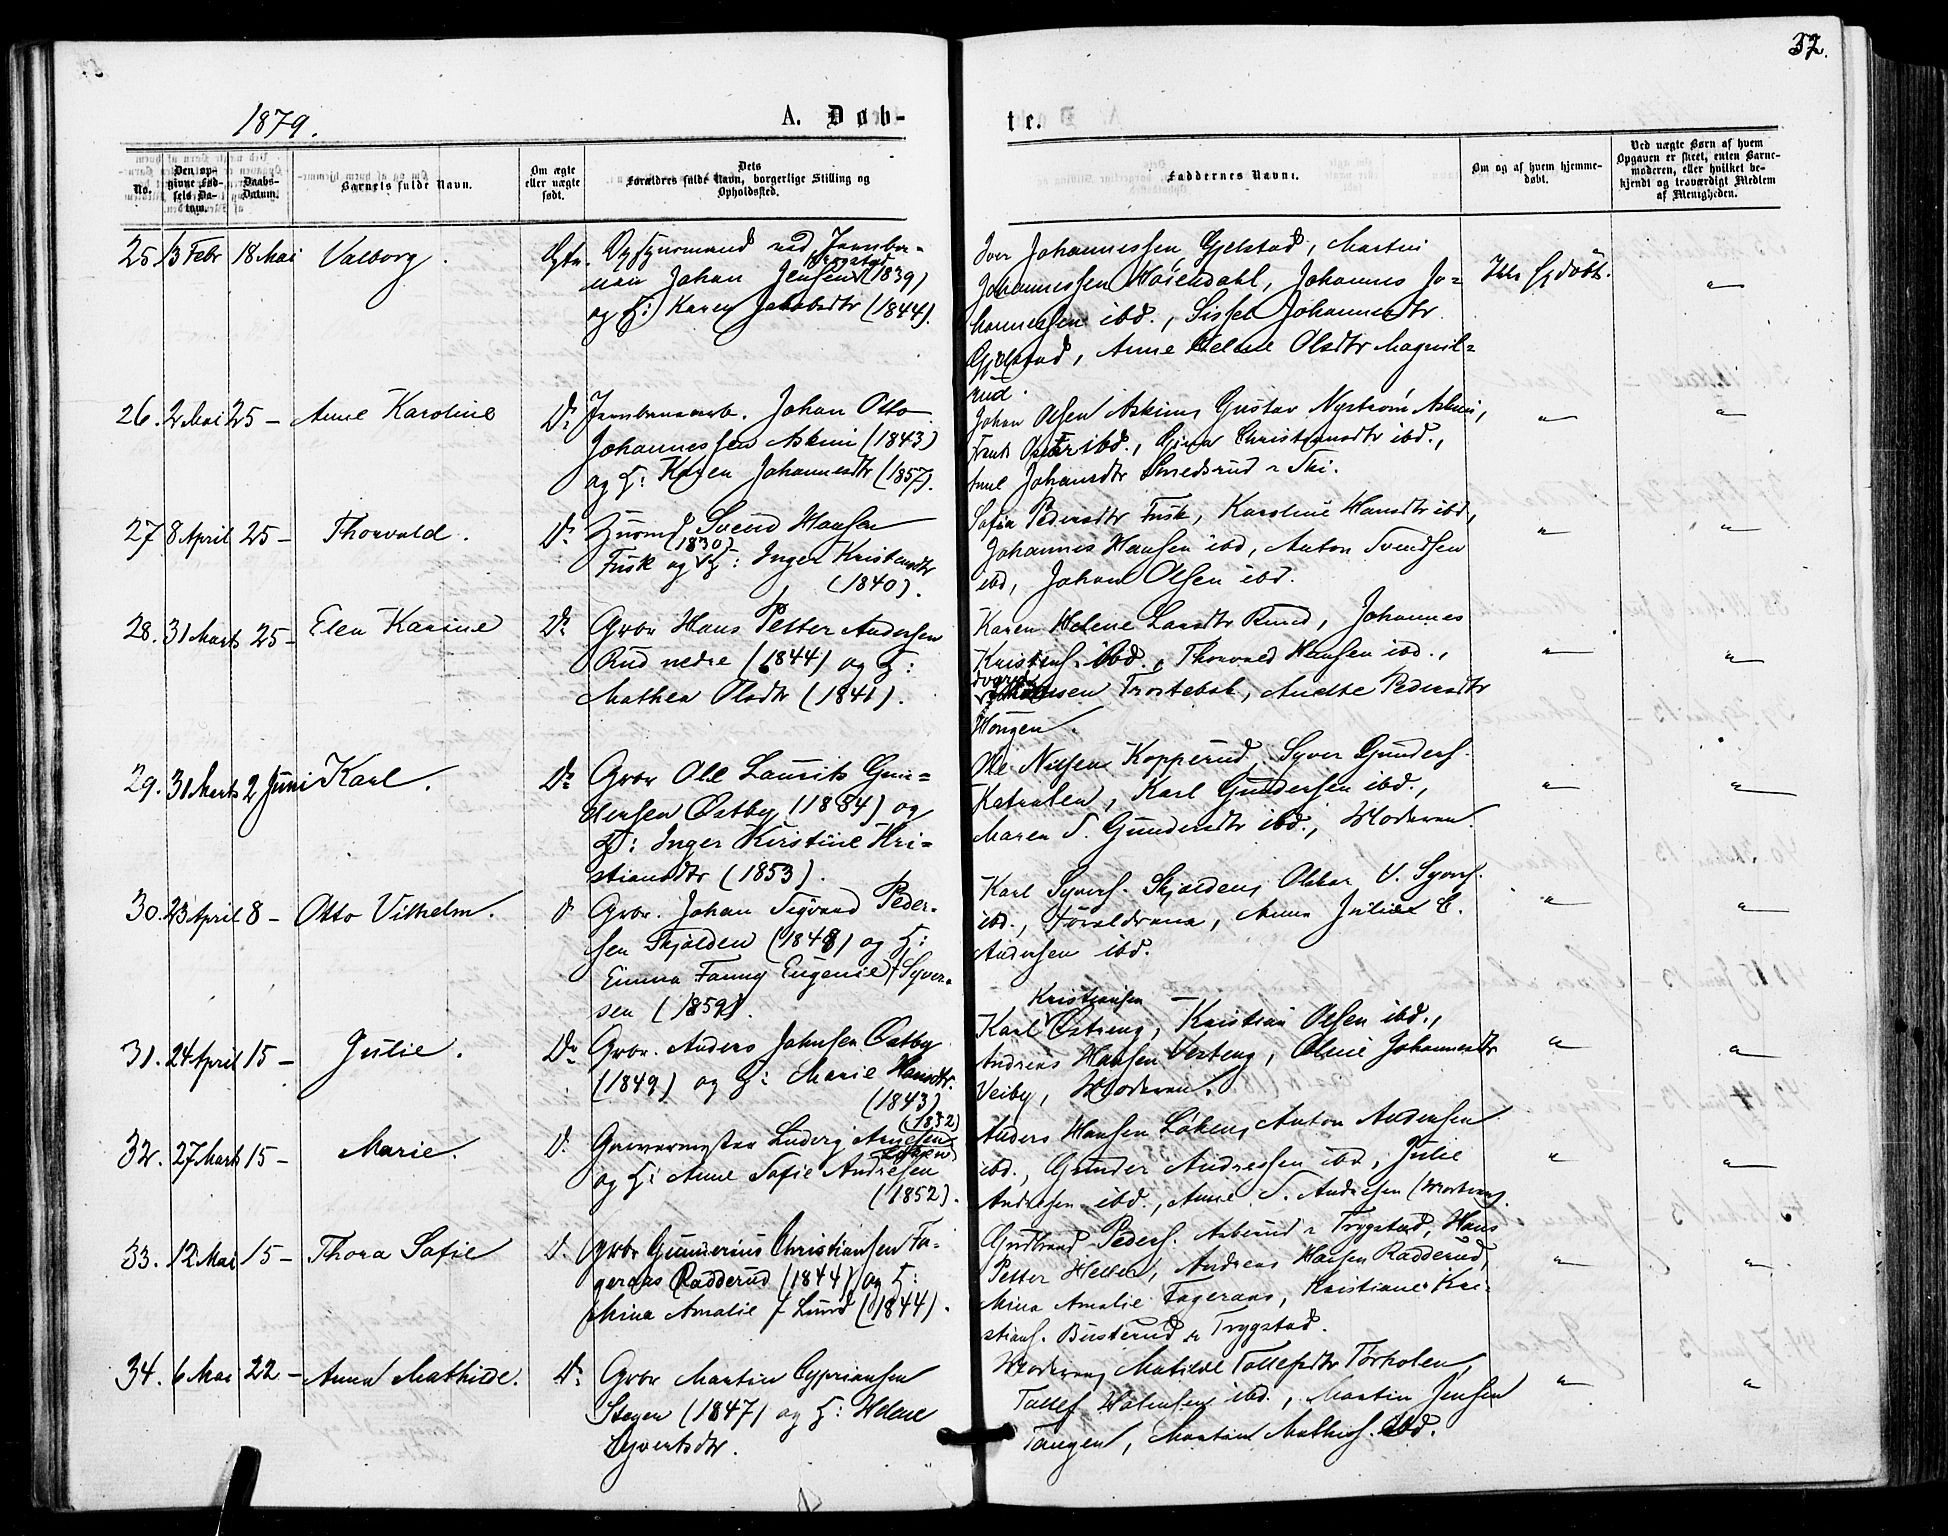 32.
1879.
A. Døb-
te.
No.
Den opgivne Fødsels Datum.
Daabs-Datum.
Barnets fulde Navn.
Om ægte eller uægte født.
Dets Forældres fulde Navn, borgerlige Stilling og Opholdssted.
Faddernes Navne.
Om og af hvem hjemmedøbt.
Ved uægte Børn af hvem Opgaven er skeet, enten Barnemoderen, eller hvilket bekjendt og troværdigt Medlem af Menigheden.
25 13 Febr 18 Mai Valborg.
ved Jernba-
nen Johan Jensen (1839)
og H: Karen Jakobsdtr (1844).
Iver Johannessen Gjelstad, Martin
Johannessen Høiendahl, Johannes Jo-
hannessen ibd., Sissel Johannesdtr
Gjelstad, Anne Helene Olsdtr Magnil-
rud.
26. 2 Mai 25 – Anne Karoline
Dº Jernbanearb. Johan Otto
Johannessen Askim (1843)
og H: Karen Johannesdtr (1857).
Johan Olsen Askim, Gustav Nystrøm Askim,
ibd., Christiansdtr ibd.,
Johansdtr Smedsrud i Ski.
27 8 April 25 – Thorvald.
Dº Husmd Svend Hansen
(1830)
Fusk og H: Inger Kristensdtr
(1840).
Sofia Pedersdtr Fusk, Karoline Hansdtr ibd,
Johannes Hansen ibd, Anton Svendsen
ibd, Johan Olsen ibd.
28. 31 Marts 25 – Elen Karine
Dº Gbr Hans Petter Andersen
Rud nedre (1844) og H:
Mathea Olsdtr (1841).
Karen Helene Larsdtr Rud, Johannes
Kristens. ibd., Thorvald Hansen ibd.,
Trostebak, Anette Pedersdtr
Hougen.
29. 31 Marts 2 Juni Karl.
Dº Gbr Ole Laurits Gun-
dersen Østby (1854) og
H: Inger Kirstine Kri-
stiansdtr (1853).
Ole Nilsen Kopperud, Syver Gunders.
Katralen, Karl Gundersen ibd.,
Maren S. Gundersdtr ibd., Moderen.
30. 23 April 8 – Otto Vilhelm.
D Gbr. Johan Sigvard Peder-
sen Skjolden (1848) og H:
Emma Fanny Eugenie f Syver-
sen (1859).
Karl Syvers. Skjolden, Oskar V. Syvers.
ibd., Forældrene, Anna Julie E.
Andersen ibd.
31. 24 April 15 – Julie.
Dº Gbr. Anders Johnsen Østby
(1849) og H: Marie Hansdtr.
(1843)
Kristiansen
Karl Østreng, Kristian Olsen ibd.,
Andreas Hansen Vesteng, Oline Johannesdtr
Veiby, Moderen.
32. 27 Marts 15 – Marie.
(1832)
D. Garvermester Ludvig Arnesen
og H: Anne Sofie Andresen
(1852).
Anders Hansen Løken, Anton Andersen
ibd., Gunder Andresen ibd, Julie
Andresen ibd., Anne S. Andresen (Moderen).
33. 12 Mai 15 – Thora Sofie
D. Gbr Gunnerius Christiansen Fa-
geraas Radderud (1844) og H:
Mina Amalie f Lund (1844).
Gudbrand Peders. i Trygstad, Hans
Petter Heller, Andreas Hansen Radderud,
Mina Amalie Fageraas, Kristiane Kri-
stians. Busterud i Trygstad.
34. 6 Mai 22 – Anna Mathilde.
Dº Gbr Martin Cypriansen
Stegen (1847) og H: Helene
Syvertsdtr.
Moderen, Matilde Tollefsdtr Torkolen,
Tollef ibd., Martin Jensen
Tangen, Martin Mathis. ibd.